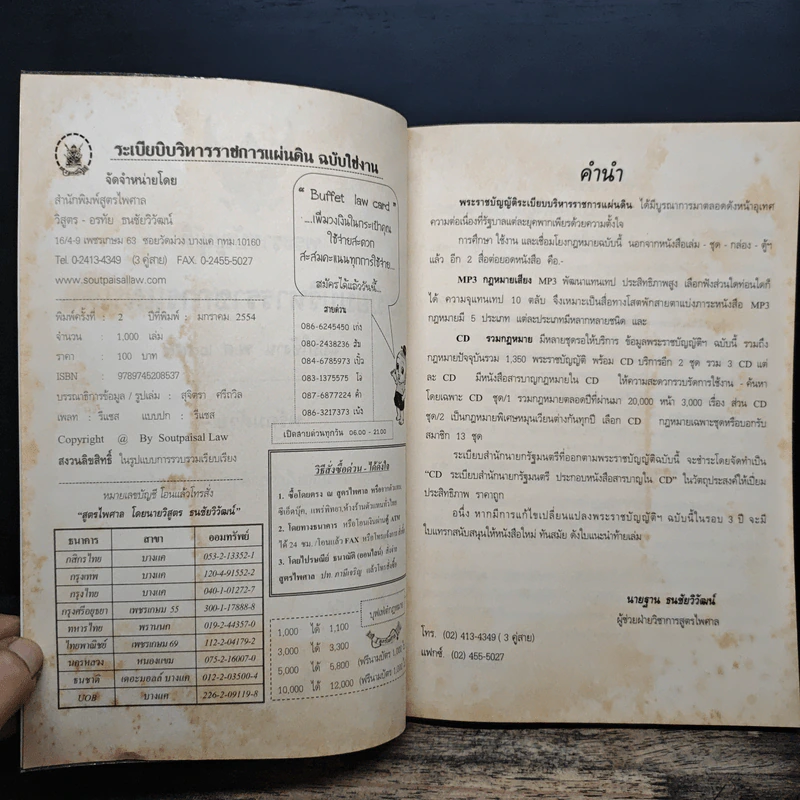 ระเบียบบริหารราชการแผ่นดิน ฉบับใช้งาน
จัดจำหน่ายโดย
สำนักพิมพ์สูตรไพศาล
วิสูตร - อรทัย ธนชัยวิวัฒน์
16/4-9 เพชรเกษม 63 ซอยวัดม่วง บางแค กทม.10160
Tel. 0-2413-4349 (3 คู่สาย) FAX. 0-2455-5027
www.soutpaisallaw.com
พิมพ์ครั้งที่ : 2 ปีที่พิมพ์ : มกราคม 2554
จำนวน : 1,000 เล่ม
ราคา : 100 บาท
ISBN : 9789745208537
บรรณาธิการข้อมูล / รูปเล่ม : สุจิตรา ศรีถวิล
เพลท : รีแซส แบบปก : รีแซส
Copyright @ By Soutpaisal Law
สงวนลิขสิทธิ์ ในรูปแบบการรวบรวมเรียบเรียง
หมายเลขบัญชี โอนแล้วโทรสั่ง
"สูตรไพศาล โดยนายวิสูตร ธนชัยวิวัฒน์"
ธนาคาร สาขา ออมทรัพย์
กสิกรไทย บางแค 053-2-13352-1
กรุงเทพ บางแค 120-4-91552-2
กรุงไทย บางแค 040-1-01272-7
กรุงศรีอยุธยา เพชรเกษม 55 300-1-17888-8
ทหารไทย พรานนก 019-2-44357-0
ไทยพาณิชย์ เพชรเกษม 69 112-2-04179-2
นครหลวง หนองแขม 075-2-16007-0
ธนชาติ เดอะมอลล์ บางแค 012-2-03500-4
UOB บางแค 226-2-09119-8
" Buffet law card "
...เพิ่มวงเงินในกระเป๋าคุณ
ใช้จ่ายสะดวก
สะสมคะแนนทุกการใช้จ่าย...
สมัครได้แล้ววันนี้...
สายด่วน
086-6245450 เก่ง
080-2438236 ส้ม
084-6785973 เปิ้ล
083-1375575 โอ๋
087-6877224 ต่ำ
086-3217373 เน้ง
เปิดสายด่วนทุกวัน 06.00 - 21.00
วิธีสั่งซื้อด่วน - ได้ดังใจ
1. ซื้อโดยตรง ณ สูตรไพศาล หรือจากตัวแทน
ซีเอ็ดบุ๊ค, แพร่พิทยา,ห้างร้านตัวแทนทั่วไทย
2. โดยทางธนาคาร หรือโอนเงินผ่านตู้ ATM
ได้ 24 ชม. /โอนแล้ว FAX หรือโทรแจ้งการ
3. โดยไปรษณีย์ ธนาณัติ (ออนไลน์) สั่งจ่าย
สูตรไพศาล ปท. ภาษีเจริญ แล้วโทรสั่งซื้อ
บุฟเฟ่ต์กฎหมาย
1,000 ได้ 1,100
3,000 ได้ 3,300
5,000 ได้ 5,800 (ฟรีนามบัตร 1,000
10,000 ได้ 12,000 (ฟรีนามบัตร 1,000
คำนำ
พระราชบัญญัติระเบียบบริหารราชการแผ่นดิน ได้มีบูรณาการมาตลอดดังหน้าอุเทศ
ความต่อเนื่องที่รัฐบาลแต่ละยุคพากเพียรด้วยความตั้งใจ
การศึกษา ใช้งาน และเชื่อมโยงกฎหมายฉบับนี้ นอกจากหนังสือเล่ม - ชุด - กล่อง - ตู้ฯ
แล้ว อีก 2 สื่อต่อยอดหนังสือ คือ.-
MP3 กฎหมายเสียง MP3 พัฒนาแทนเทป ประสิทธิภาพสูง เลือกฟังส่วนใดท่อนใดก็
ได้ ความจุแทนเทป 10 ตลับ จึงเหมาะเป็นสื่อทางโสตพักสายตาแบ่งภาระหนังสือ MP3
กฎหมายมี 5 ประเภท แต่ละประเภทมีหลากหลายชนิด และ
CD รวมกฎหมาย มีหลายชุดรอให้บริการ ข้อมูลพระราชบัญญัติฯ ฉบับนี้ รวมถึง
กฎหมายปัจจุบันรวม 1,350 พระราชบัญญัติ พร้อม CD บริการอีก 2 ชุด รวม 3 CD แต่
ละ CD มีหนังสือสารบาญกฎหมายใน CD ให้ความสะดวกรวบรัดการใช้งาน - ค้นหา
โดยเฉพาะ CD ชุด/1 รวมกฎหมายตลอดปีที่ผ่านมา 20,000 หน้า 3,000 เรื่อง ส่วน CD
ชุด/2 เป็นกฎหมายพิเศษหมุนเวียนต่างกันทุกปี เลือก CD กฎหมายเฉพาะชุดหรือบอกรับ
สมาชิก 13 ชุด
ระเบียบสำนักนายกรัฐมนตรี ที่ออกตามพระราชบัญญัติฉบับนี้ จะชำระโดยจัดทำเป็น
"CD ระเบียบสำนักนายกรัฐมนตรี ประกอบหนังสือสารบาญใน CD" ในวัตถุประสงค์ให้เปี่ยม
ประสิทธิภาพ ราคาถูก
อนึ่ง หากมีการแก้ไขเปลี่ยนแปลงพระราชบัญญัติฯ ฉบับนี้ในรอบ 3 ปี จะมี
ใบแทรกสนับสนุนให้หนังสือใหม่ ทันสมัย ดังใบแนะนำท้ายเล่ม
นายฐาน ธนชัยวิวัฒน์
ผู้ช่วยฝ่ายวิชาการสูตรไพศาล
โทร. (02) 413-4349 ( 3 คู่สาย)
แฟกซ์. (02) 455-5027